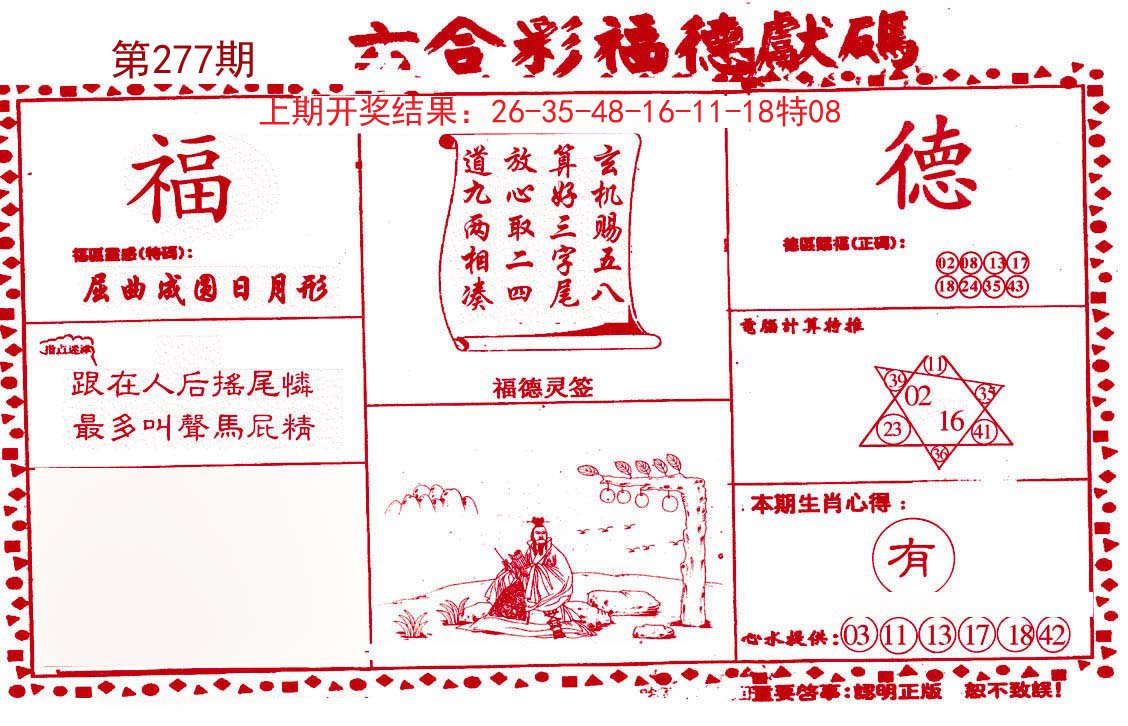 六合彩福德獻碼
第277期
上期开奖结果：26-35-48-16-11-18特08
福
福區靈感(特碼)：
屈曲成圆日月形
指点迷津
跟在人后搖尾憐
最多叫聲馬屁精
玄机赐五八
算好三字尾
放心取二四
道九两相凑
福德灵签
德
德區賜福(正碼)：
02 08 13 17
18 24 35 43
電腦計算特推
11
39 02 35
16
23 41
36
本期生肖心得：
有
心水提供：03 11 13 17 18 42
重要啓事：認明正版 恕不致誤！